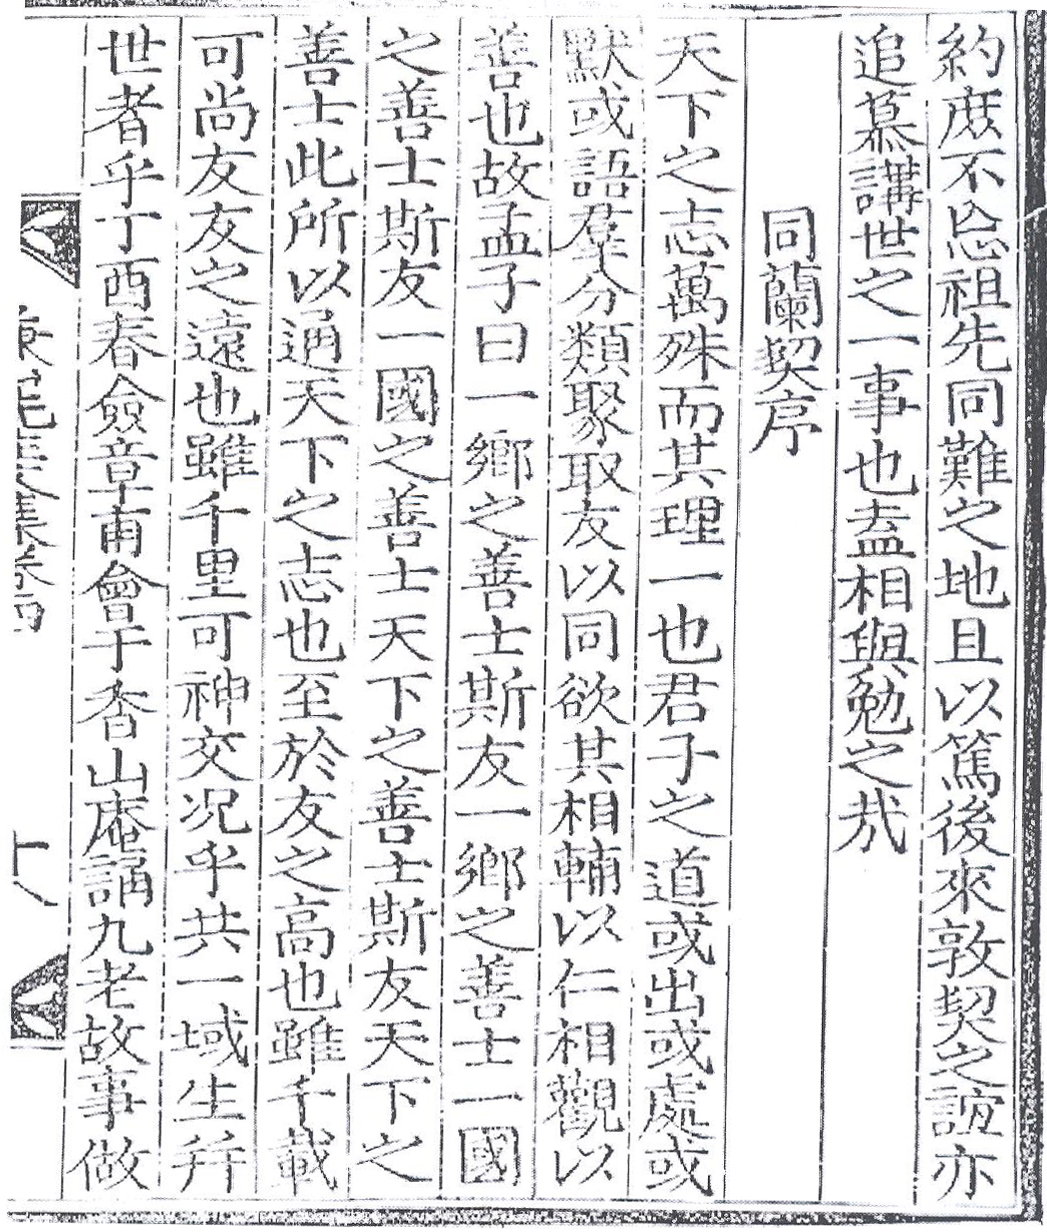 約庶不忘祖先同難之地且以篤後來敦契之誼亦
追慕講世之一事也盍相與勉之哉
同蘭契序
天下之志萬殊而其理一也君子之道或出或處或
默或語羣分類聚取友以同欲其相輔以仁相觀以
善也故孟子曰一鄉之善士斯友一鄉之善士一國
之善士斯友一國之善士天下之善士斯友天下之
善士此所以通天下之志也至於友之高也雖千載
可尚友友之遠也雖千里可神交况乎共一域生幷
世者乎丁酉春僉章甫會于香山庵誦九老故事做